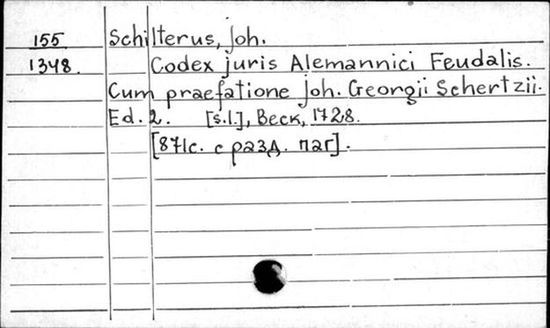 155 Schilterus, Joh.
1348. Codex juris Alemannici Feudalis.
Cum praefatione Joh. Georgii Schertzii.
Ed. 2. [s.l.], Beck, 1728.
[871c. с разд. паг].